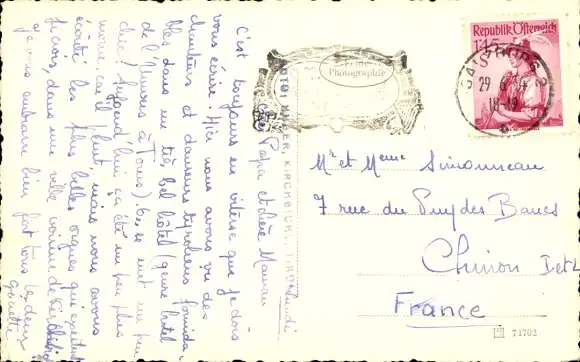 Mardi
Cher Papa et chère Maman
C'est toujours en vitesse que je dois
vous écrire. Hier nous avons vu des
chanteurs et danseurs tyroliens formida
bles dans un très bel hôtel (genre hôtel
de l'Univers à Tours). C'est un peu
chic! Aujourd'hui ça été un peu plus
car il pleut, mais nous avons
écouté les plus belles orgues qui
je crois, dans une ville voisine de
Je vous embrasse bien fort tous les deux
Ginette
Echte
Photographie
KIRCHBICHL, TIROL
Republik Österreich
1.45
S
29 6 54
18-19
Mr et Meme Simonneau
7 rue du Puy des Bancs
Chinon I et L
France
74702